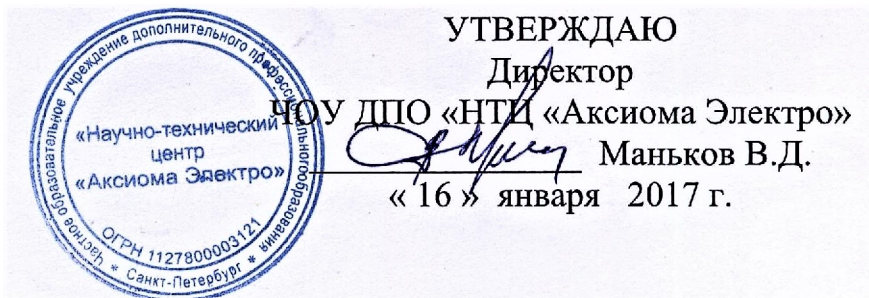 УТВЕРЖДАЮ
Директор
ЧОУ ДПО «НТЦ «Аксиома Электро»
Маньков В.Д.
« 16 » января 2017 г.
Частное образовательное учреждение дополнительного профессионального образования
«Научно-технический
центр
«Аксиома Электро»
ОГРН 1127800003121
* Санкт-Петербург *